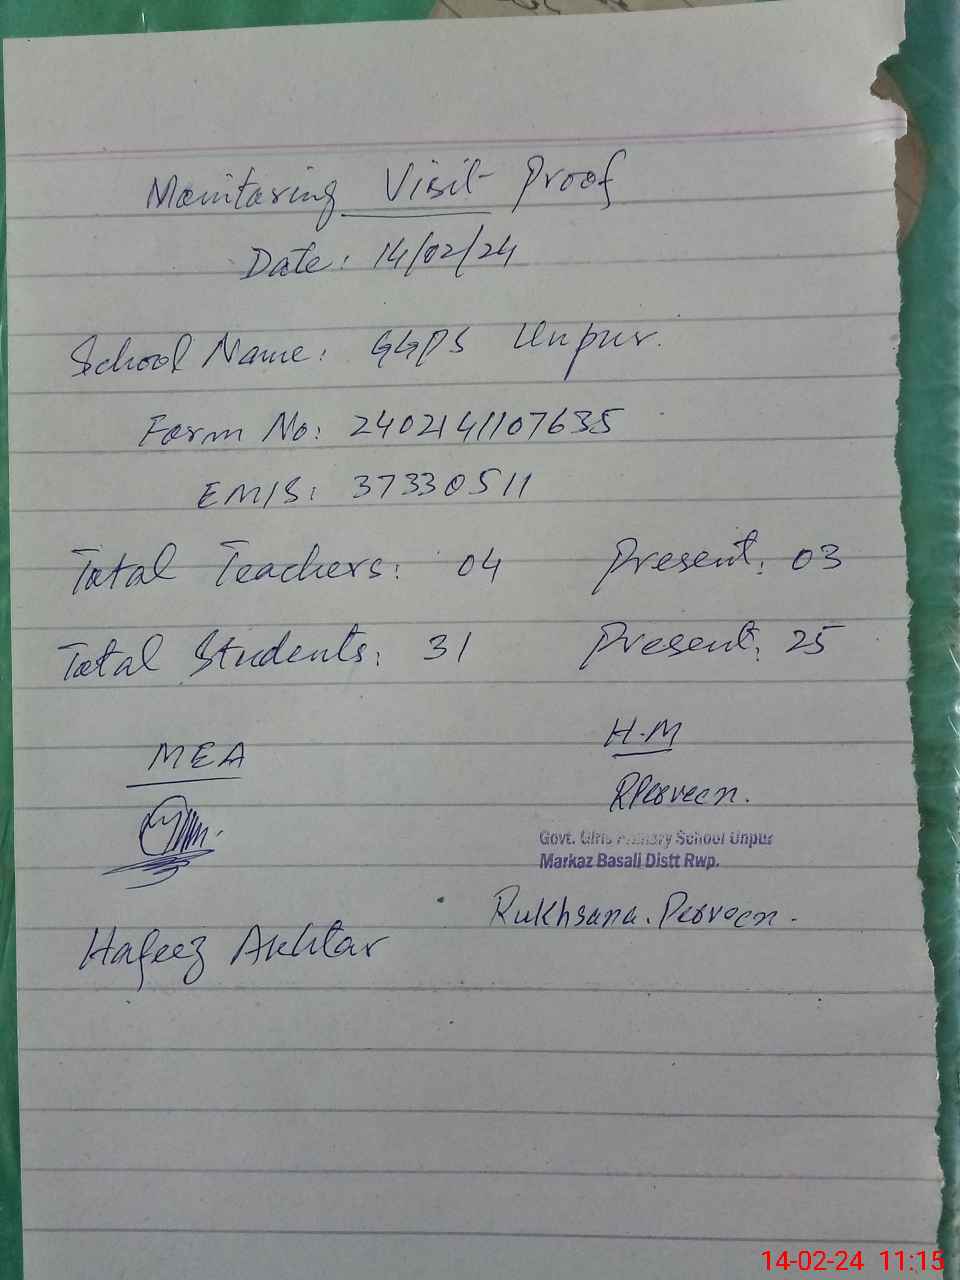 Monitoring Visit Proof
Date: 14/02/24
School Name: GGPS Unpur.
Form No: 2402141107635
EMIS: 37330511
Total Teachers: 04 Present: 03
Total Students: 31 Present: 25
MEA H.M
RPerveen.
Govt. Girls Primary School Unpur
Markaz Basali Distt Rwp.
Rukhsana. Perveen.
Hafeez Akhtar
14-02-24 11:15